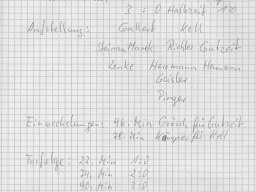 3 : 0 Halbzeit 1:0
Aufstellung: Gallert Kell
Marek Richter Gutzeit
Zinke Herrmann Hamann
Geisler
Pinger
Einwechslungen: 46. Min Grosch für Gutzeit
78. Min Kämpfer für Kell
Torfolge: 22. Min 1:0
74. Min 2:0
90. Min 3:0